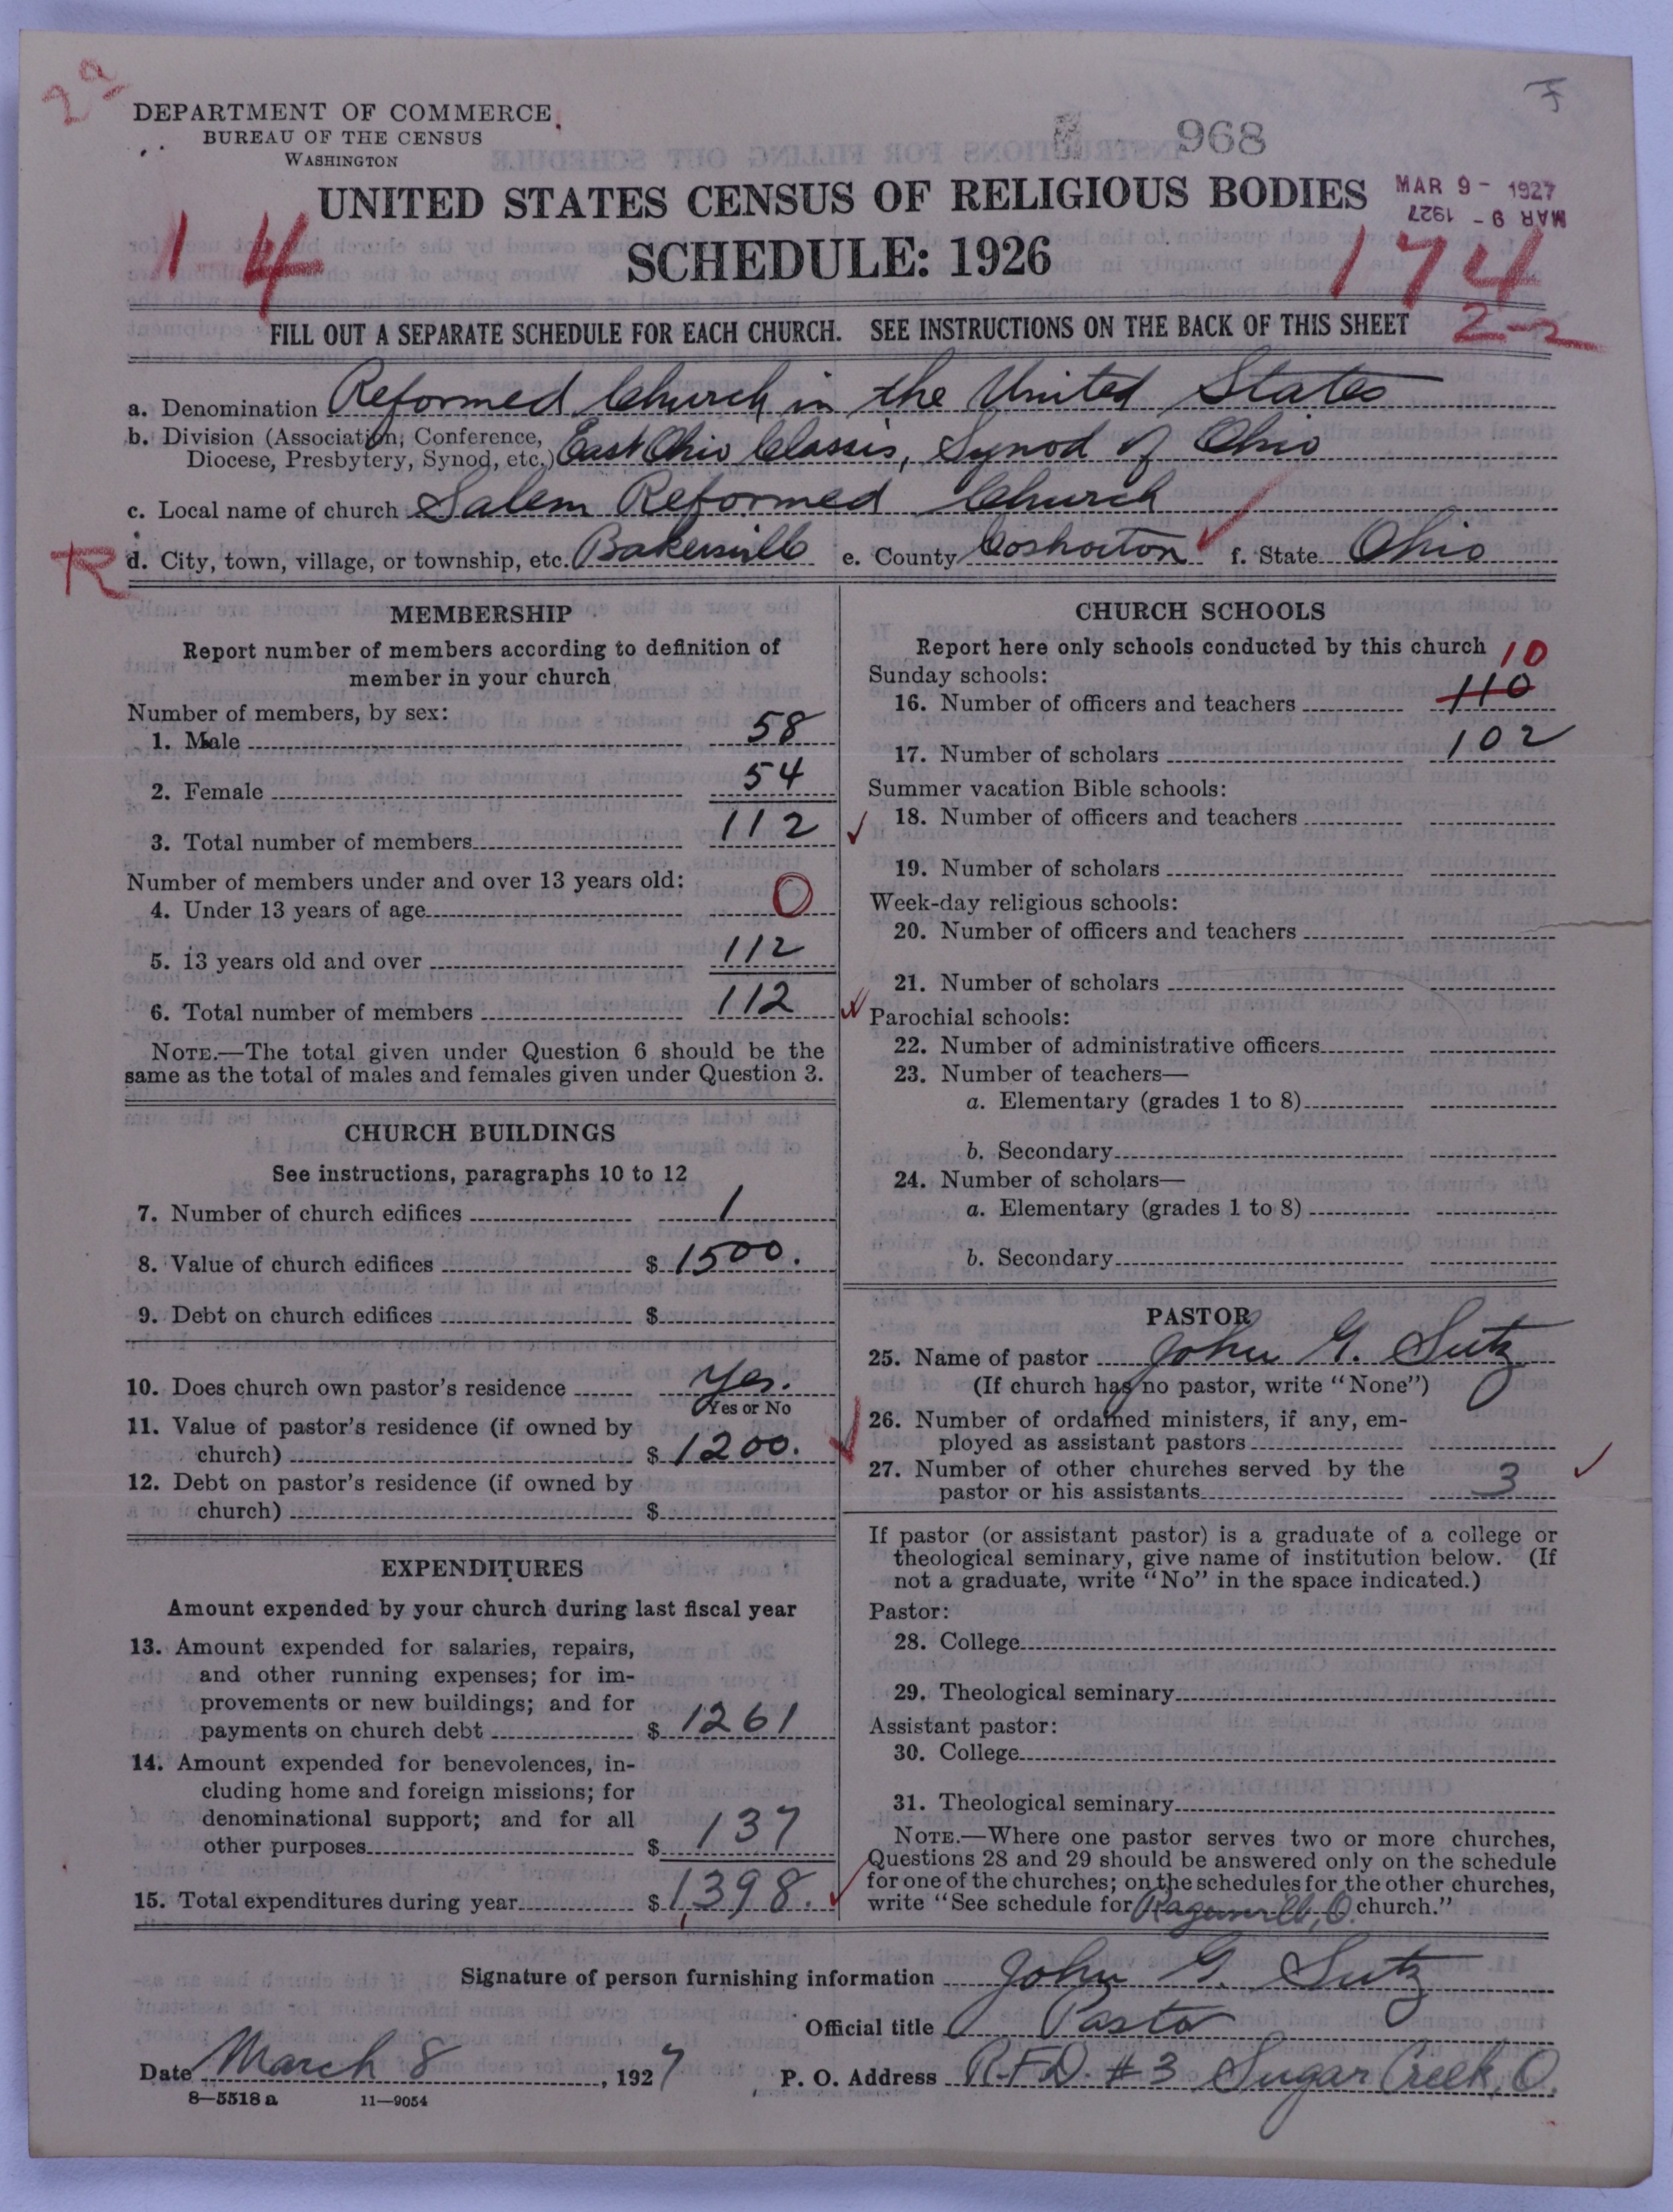 2a
DEPARTMENT OF COMMERCE
BUREAU OF THE CENSUS
WASHINGTON
968
UNITED STATES CENSUS OF RELIGIOUS BODIES
MAR 9 - 1927
MAR 9 - 1927
SCHEDULE: 1926
1 4
174
2-2
FILL OUT A SEPARATE SCHEDULE FOR EACH CHURCH. SEE INSTRUCTIONS ON THE BACK OF THIS SHEET
a. Denomination Reformed Church in the United States
b. Division (Association, Conference, Diocese, Presbytery, Synod, etc.) East Ohio Classis, Synod of Ohio
c. Local name of church Salem Reformed Church
R d. City, town, village, or township, etc. Bakersville e. County Coshocton f. State Ohio
MEMBERSHIP
Report number of members according to definition of
member in your church
Number of members, by sex:
1. Male 58
2. Female 54
3. Total number of members 112
Number of members under and over 13 years old:
4. Under 13 years of age 0
5. 13 years old and over 112
6. Total number of members 112
NOTE.—The total given under Question 6 should be the
same as the total of males and females given under Question 3.
CHURCH BUILDINGS
See instructions, paragraphs 10 to 12
7. Number of church edifices 1
8. Value of church edifices $ 1500.
9. Debt on church edifices $
10. Does church own pastor's residence Yes.
Yes or No
11. Value of pastor's residence (if owned by
church) $ 1200.
12. Debt on pastor's residence (if owned by
church) $
EXPENDITURES
Amount expended by your church during last fiscal year
13. Amount expended for salaries, repairs,
and other running expenses; for im-
provements or new buildings; and for
payments on church debt $ 1261
14. Amount expended for benevolences, in-
cluding home and foreign missions; for
denominational support; and for all
other purposes $ 137
15. Total expenditures during year $ 1,398.
CHURCH SCHOOLS
Report here only schools conducted by this church
10
Sunday schools:
16. Number of officers and teachers 110
17. Number of scholars 102
Summer vacation Bible schools:
18. Number of officers and teachers
19. Number of scholars
Week-day religious schools:
20. Number of officers and teachers
21. Number of scholars
Parochial schools:
22. Number of administrative officers
23. Number of teachers—
a. Elementary (grades 1 to 8)
b. Secondary
24. Number of scholars—
a. Elementary (grades 1 to 8)
b. Secondary
PASTOR
25. Name of pastor John G. Sutz
(If church has no pastor, write "None")
26. Number of ordained ministers, if any, em-
ployed as assistant pastors
27. Number of other churches served by the
pastor or his assistants 3
If pastor (or assistant pastor) is a graduate of a college or
theological seminary, give name of institution below. (If
not a graduate, write "No" in the space indicated.)
Pastor:
28. College
29. Theological seminary
Assistant pastor:
30. College
31. Theological seminary
NOTE.—Where one pastor serves two or more churches,
Questions 28 and 29 should be answered only on the schedule
for one of the churches; on the schedules for the other churches,
write "See schedule for Ragersville, O. church."
Signature of person furnishing information John G. Sutz
Official title Pastor
Date March 8, 1927
P. O. Address R.F.D. #3 Sugar Creek, O.
8—5518 a 11—9054